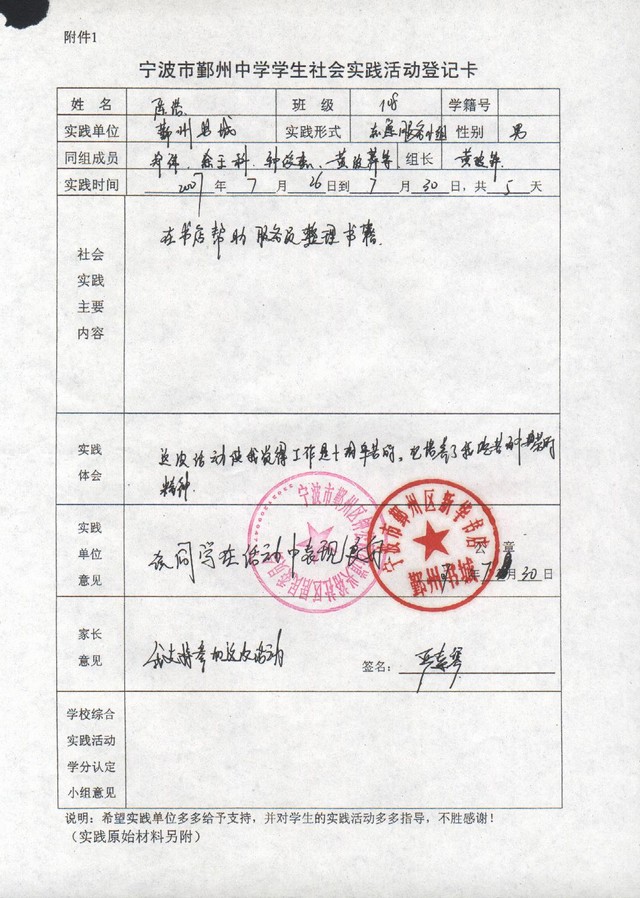 附件1
宁波市鄞州中学学生社会实践活动登记卡
姓 名 陈浩 班 级 学籍号
实践单位 鄞州书城 实践形式 服务小组 性别 男
同组成员 组长
实践时间 2007 年 7 月 26 日到 7 月 30 日，共 5 天
社会
实践
主要
内容
在书店帮助服务员整理书籍.
实践
体会
这次活动使我觉得工作是十分辛苦的，也培养了我吃苦耐劳的
精神.
宁波市鄞州区
社区居民委员会
宁波市鄞州区新华书店
鄞州书城
实践
单位
意见
该同学在活动中表现良好
公 章
年 7 月 30 日
家长
意见
我支持参加这次活动
签名：
学校综合
实践活动
学分认定
小组意见
说明：希望实践单位多多给予支持，并对学生的实践活动多多指导，不胜感谢！
（实践原始材料另附）